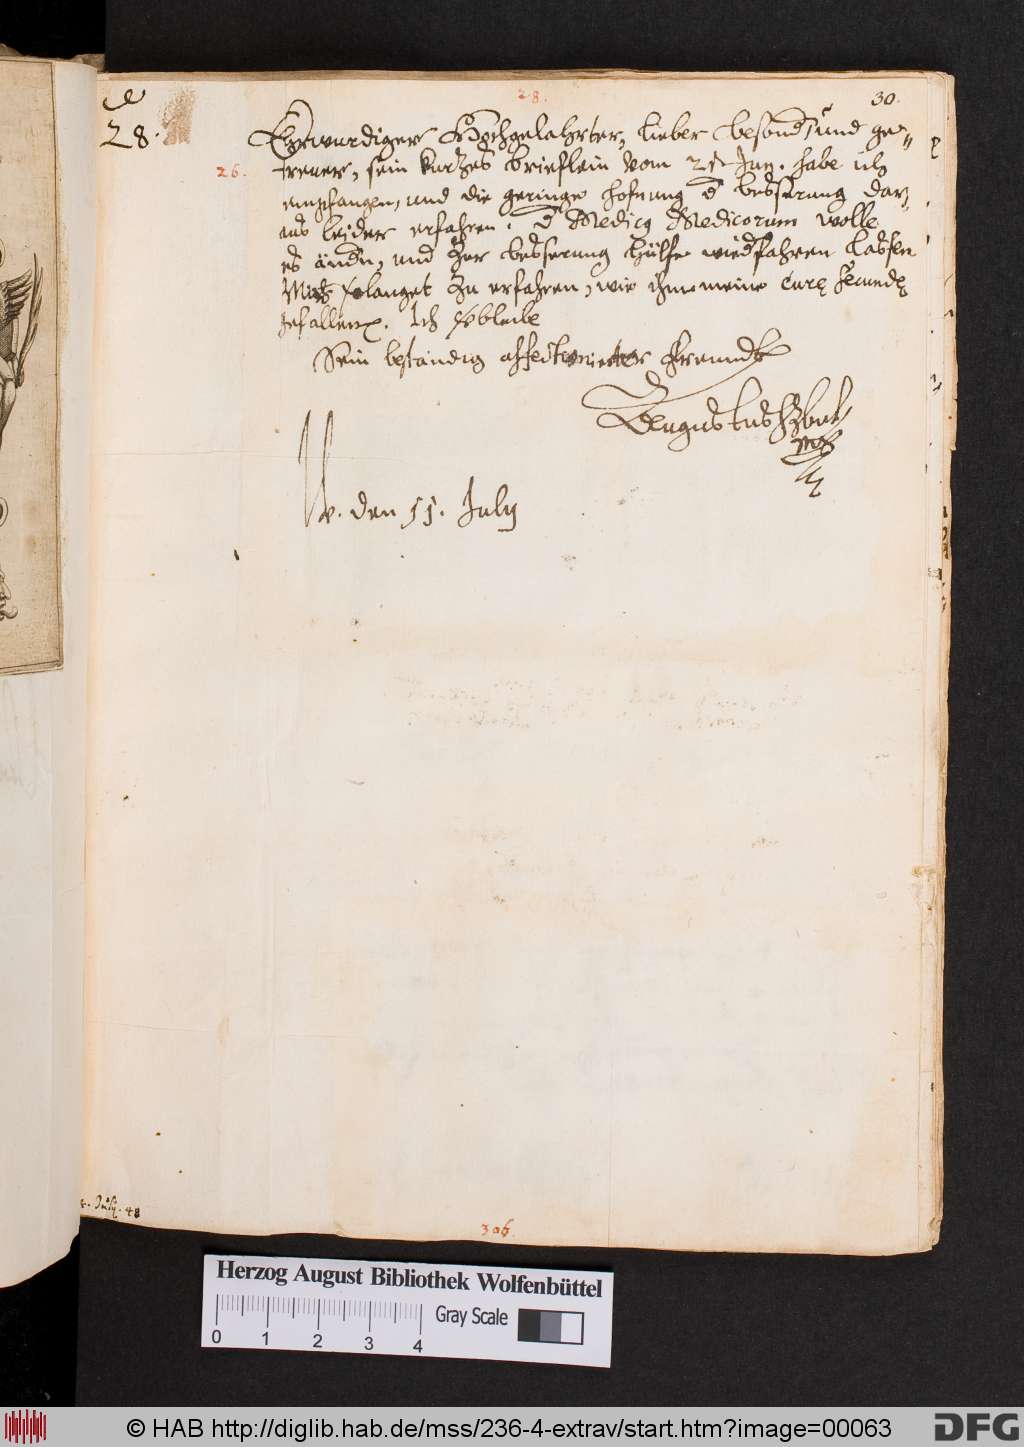 28.
30.
28.
Ehrwurdiger Hochgelahrter, lieber besond. und ge-
26.
trewer, sein kurtzes brieflein vom 21 Jun. habe ich
empfangen, und die geringe hofnung d besserung dar-
aus leider erfahren. d Medicq Medicorum wolle
es ändn, und Zur besserung hülfe wiedfahren lassen
Mich verlanget Zu erfahren, wie ihme meine Curę secundę
gefallen. Ich verbleibe
Sein bestandig affectionirter Freund
Augustus HzBuL
mp
W. den 11. July
4. July. 48
306.
Herzog August Bibliothek Wolfenbüttel
Gray Scale
0 1 2 3 4
© HAB http://diglib.hab.de/mss/236-4-extrav/start.htm?image=00063
DFG